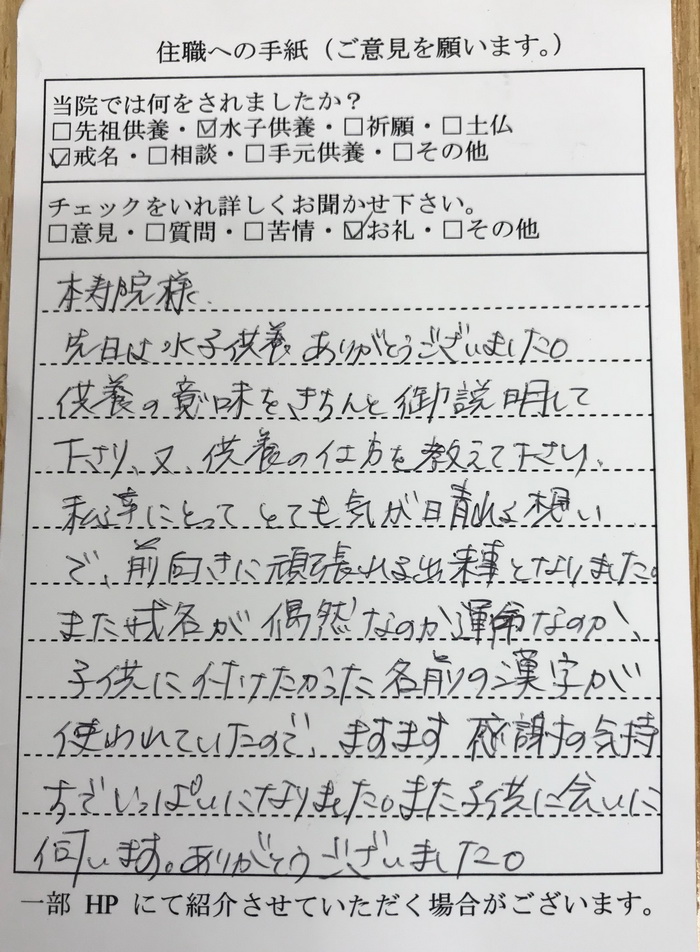 住職への手紙（ご意見を願います。）
当院では何をされましたか？
□先祖供養・☑水子供養・□祈願・□土仏
☑戒名・□相談・□手元供養・□その他
チェックをいれ詳しくお聞かせ下さい。
□意見・□質問・□苦情・☑お礼・□その他
本寿院様
先日は水子供養ありがとうございました。
供養の意味をきちんと御説明して
下さり、又、供養の仕方を教えて下さり、
私達にとってとても気が晴れる想い
で、前向きに頑張れる出来事となりました。
また戒名が偶然なのか運命なのか、
子供に付けたかった名前の漢字が
使われていたので、ますます感謝の気持
ちでいっぱいになりました。また子供に会いに
伺います。ありがとうございました。
一部 HP にて紹介させていただく場合がございます。